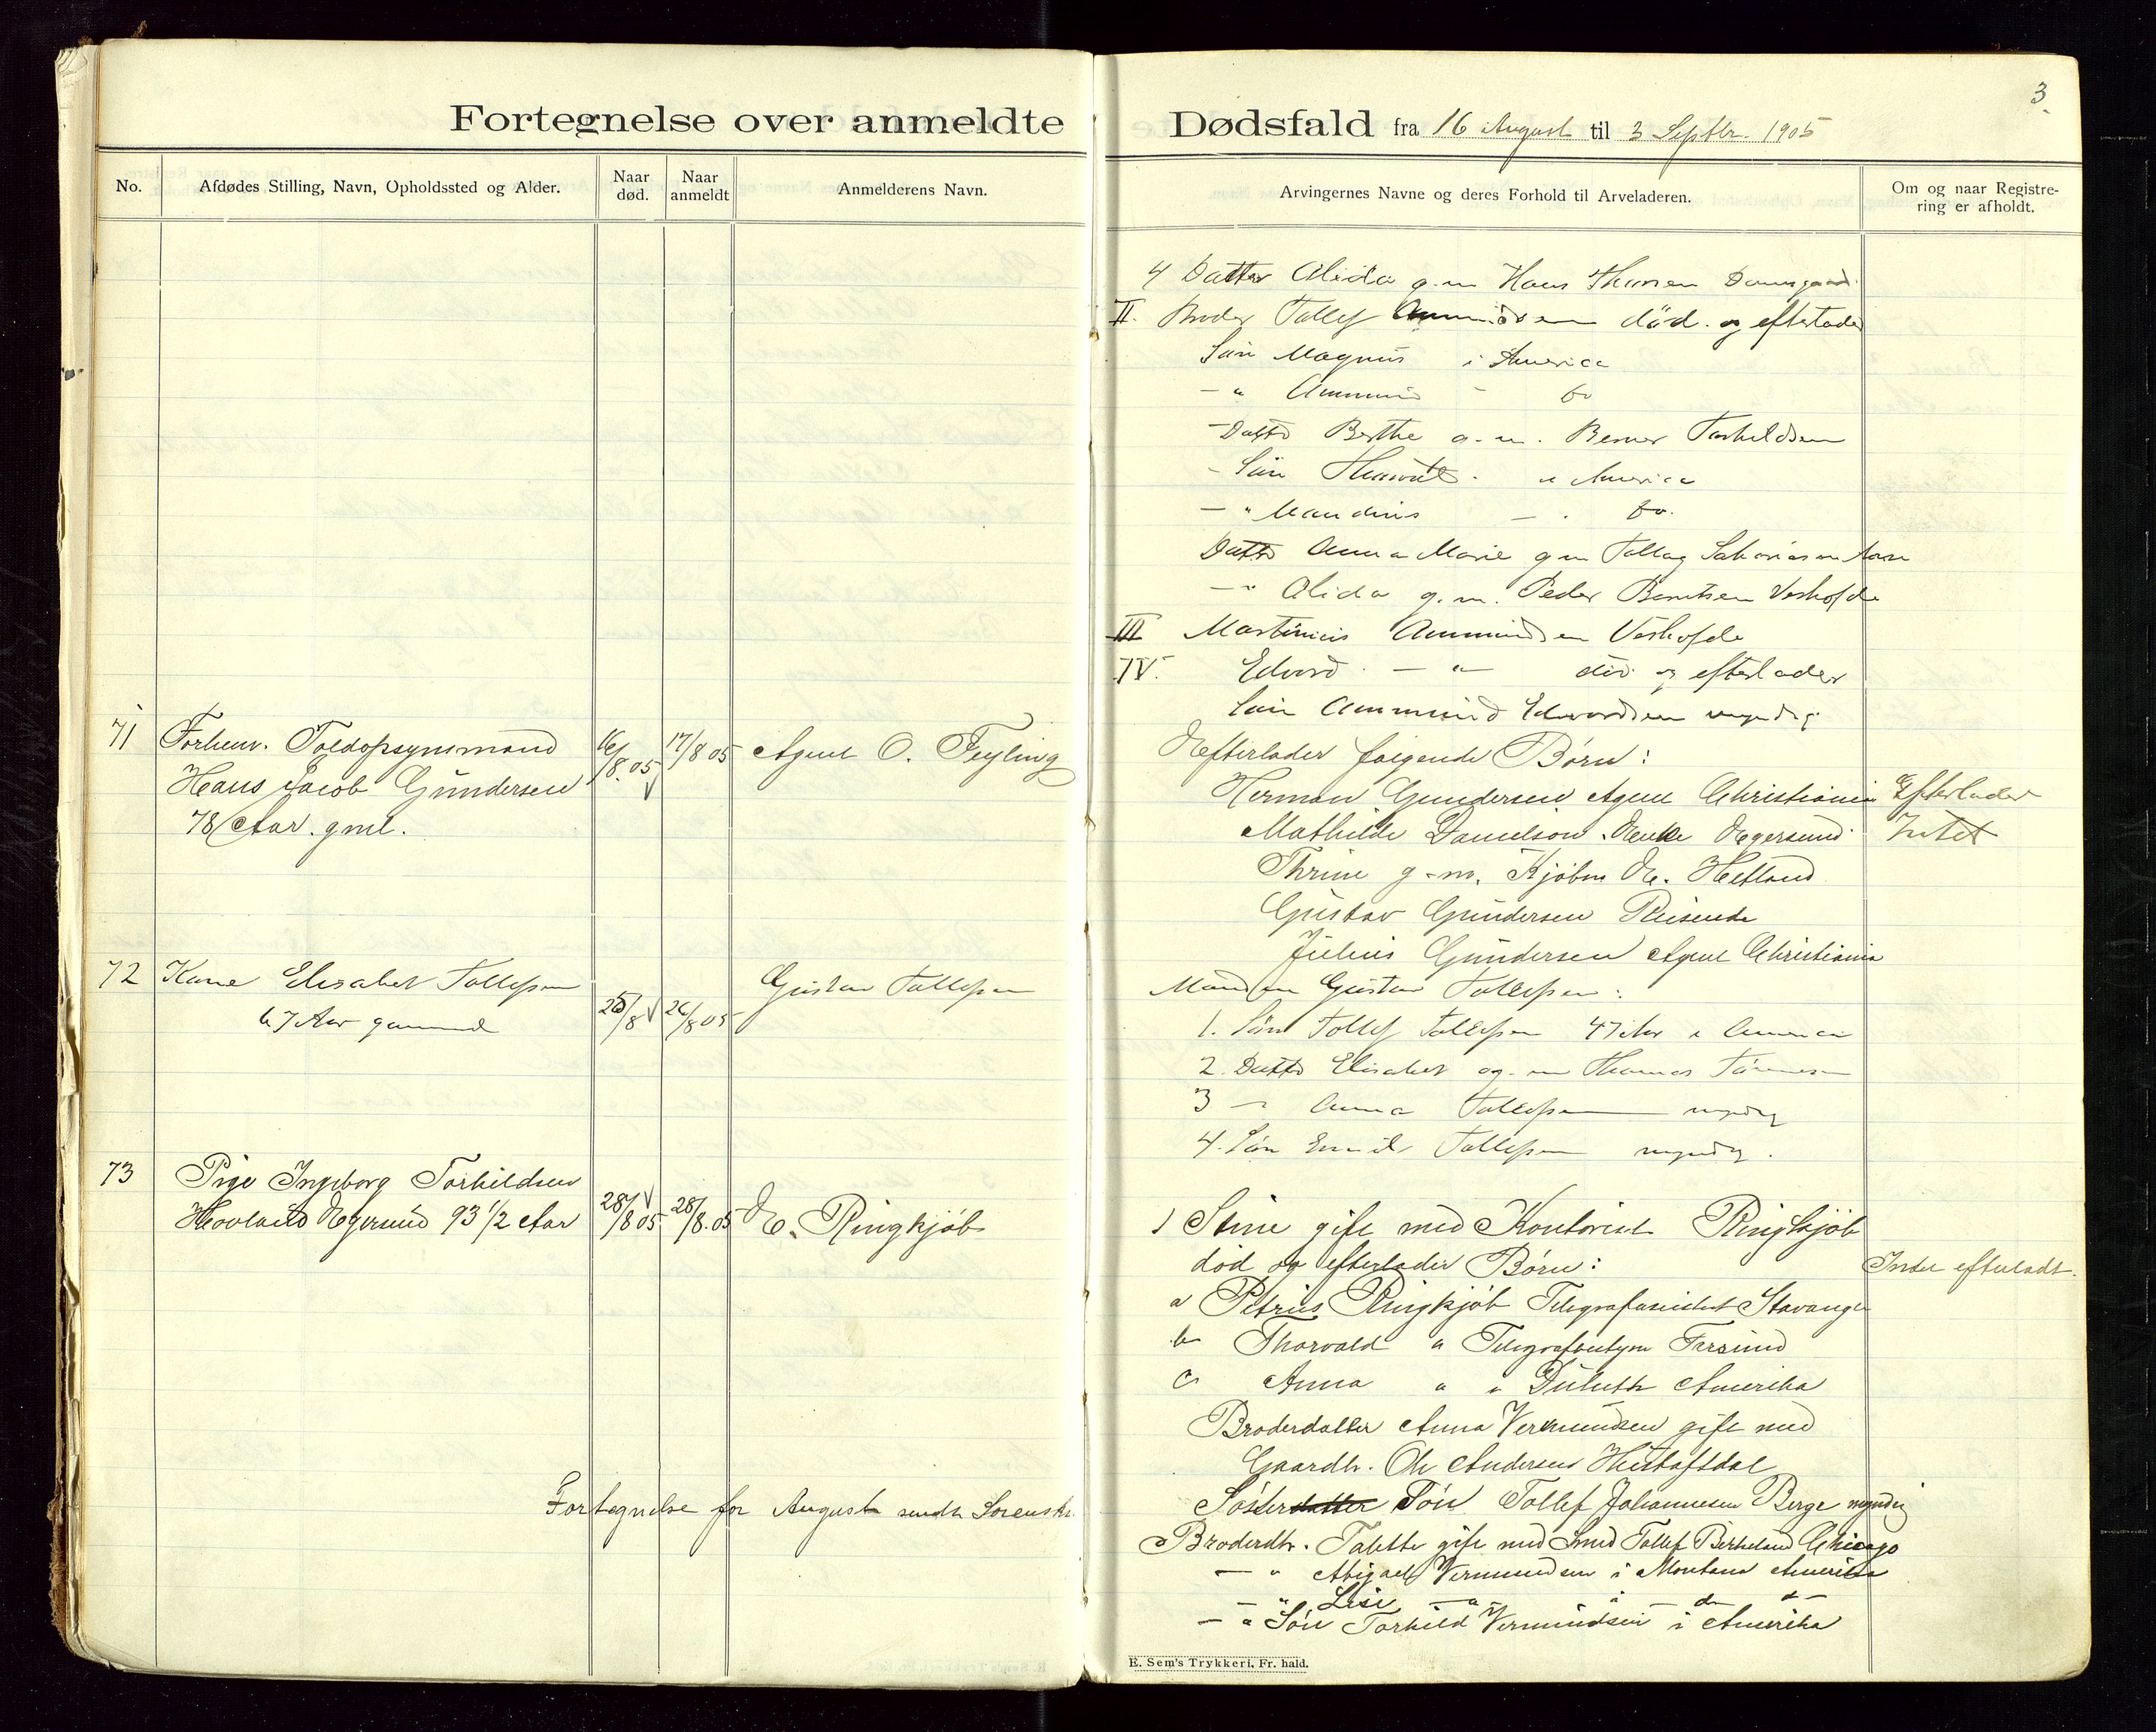 Fortegnelse over anmeldte Dødsfald fra 16 August til 3 Septbr. 1905
3
No.
Afdødes Stilling, Navn, Opholdssted og Alder.
Naar død.
Naar anmeldt
Anmelderens Navn.
Arvingernes Navne og deres Forhold til Arveladeren.
Om og naar Registrering er afholdt.
4 Datter Alida g.m Hans Damsgaard
II. Broder Tollef død. og efterlader
Søn Magnus i America
- " Ammund - do
- Datter Berthe g.m. Berner Torkildsen
- Søn i America
- " Mandius - do.
Datter Anna Marie g m Tollag
- " Alida g.m. Peder Berntsen
III Martinius Ammundsen
IV. Edvard - " - død og efterlader
Søn Ammund Edvardsen myndig
71
Forhenv. Toldopsynsmand
Hans Jacob Gundersen
78 Aar gml.
16/8.05
17/8 05
Agent O. Feyling
Efterlader følgende Børn:
Herman Gundersen Agent Christiania
Mathilde Danielson Enke Egersund
Thrine g-m. Kjøbm E. Hetland
Gustav Gundersen Reisende
Julius Gundersen Agent Christiania
Efterlader
Intet
72
Kone Elisabet Tollefsen
67 Aar gammel
25/8
26/8 05
Gustav Tollefsen
Manden Gustav Tollefsen:
1. Søn Tollef Tollefsen 47 Aar i America
2. Datter Elisabet g-m Thomas Tønnesen
3 - " Anna Tollefsen myndig
4. Søn Emil Tollefsen myndig.
73
Pige Ingeborg Torkildsen
Hovland Egersund 93 1/2 Aar
28/8 05
28/8.05
E. Ringkjøb
1 Stine gift med Kontorist Ringkjøb
død og efterlader Børn:
a Petrus Ringkjøb Stavanger
b Thorvald " Telegrafbestyrer Farsund
c Anna " " Duluth Amerika
Broderdatter Anna Vermundsen gift med
Gaardbr. Ole Andersen
Søsterdatter Søn Tollef Johannesen Berge myndig
Broderdtr. Talette gift med Smed Tollef Birkeland Chicago
- " Abigael Vermundsen i Montana Amerika
- " Lise - " - i do do
- " Søn Torkild Vermundsen i Amerika
Intet efterladt.
Fortegnelse for August sendt Sorenskr.
E. Sem's Trykkeri, Fr. hald.